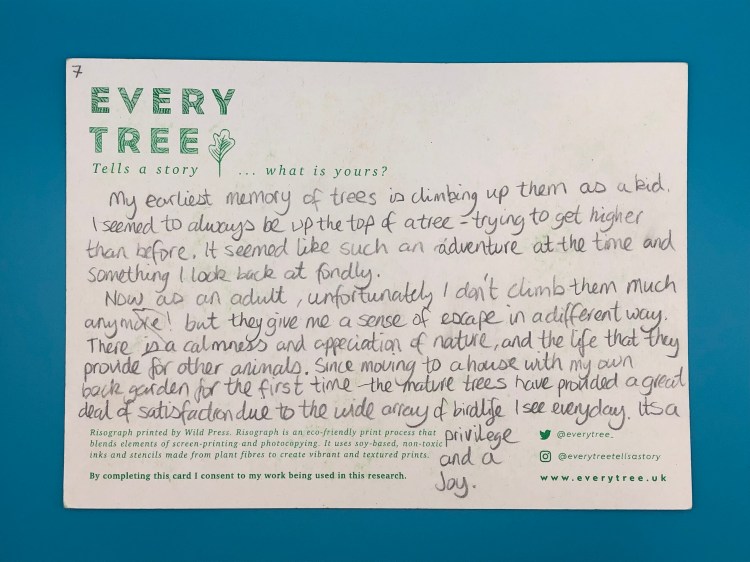 7
EVERY
TREE
Tells a story ... what is yours?
My earliest memory of trees is climbing up them as a kid.
I seemed to always be up the top of a tree - trying to get higher
than before. It seemed like such an adventure at the time and
something I look back at fondly.
Now as an adult, unfortunately I don't climb them much
anymore! but they give me a sense of escape in a different way.
There is a calmness and appeciation of nature, and the life that they
provide for other animals. Since moving to a house with my own
back garden for the first time - the mature trees have provided a great
deal of satisfaction due to the wide array of birdlife I see everyday. Its a
privilege
and a
Joy.
Risograph printed by Wild Press. Risograph is an eco-friendly print process that
blends elements of screen-printing and photocopying. It uses soy-based, non-toxic
inks and stencils made from plant fibres to create vibrant and textured prints.
By completing this card I consent to my work being used in this research.
@everytree_
@everytreetellsastory
www.everytree.uk